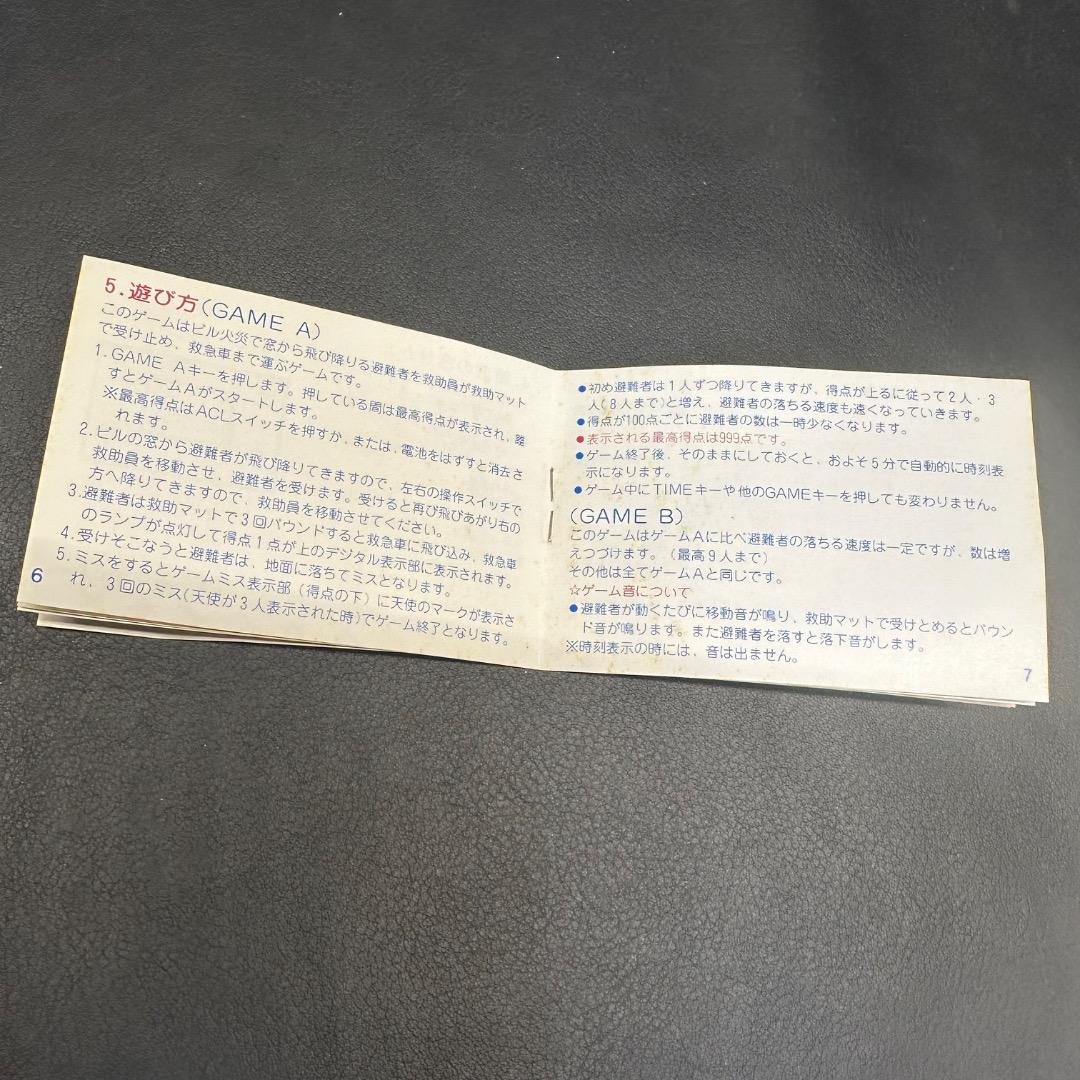 5.遊び方(GAME A)
このゲームはビル火災で窓から飛び降りる避難者を救助員が救助マット
で受け止め、救急車まで運ぶゲームです。
1.GAME Aキーを押します。押している間は最高得点が表示され、離
すとゲームAがスタートします。
※最高得点はACLスイッチを押すか、または、電池をはずすと消去さ
れます。
2.ビルの窓から避難者が飛び降りてきますので、左右の操作スイッチで
救助員を移動させ、避難者を受けます。受けると再び飛びあがり右の
方へ降りてきますので、救助員を移動させてください。
3.避難者は救助マットで3回バウンドすると救急車に飛び込み、救急車
のランプが点灯して得点1点が上のデジタル表示部に表示されます。
4.受けそこなうと避難者は、地面に落ちてミスとなります。
5.ミスをするとゲームミス表示部(得点の下)に天使のマークが表示さ
れ、3回のミス(天使が3人表示された時)でゲーム終了となります。
6
●初め避難者は1人ずつ降りてきますが、得点が上るに従って2人・3
人(8人まで)と増え、避難者の落ちる速度も速くなっていきます。
●得点が100点ごとに避難者の数は一時少なくなります。
●表示される最高得点は999点です。
●ゲーム終了後、そのままにしておくと、およそ5分で自動的に時刻表
示になります。
●ゲーム中にTIMEキーや他のGAMEキーを押しても変わりません。
(GAME B)
このゲームはゲームAに比べ避難者の落ちる速度は一定ですが、数は増
えつづけます。(最高9人まで)
その他は全てゲームAと同じです。
☆ゲーム音について
●避難者が動くたびに移動音が鳴り、救助マットで受けとめるとバウン
ド音が鳴ります。また避難者を落すと落下音がします。
※時刻表示の時には、音は出ません。
7